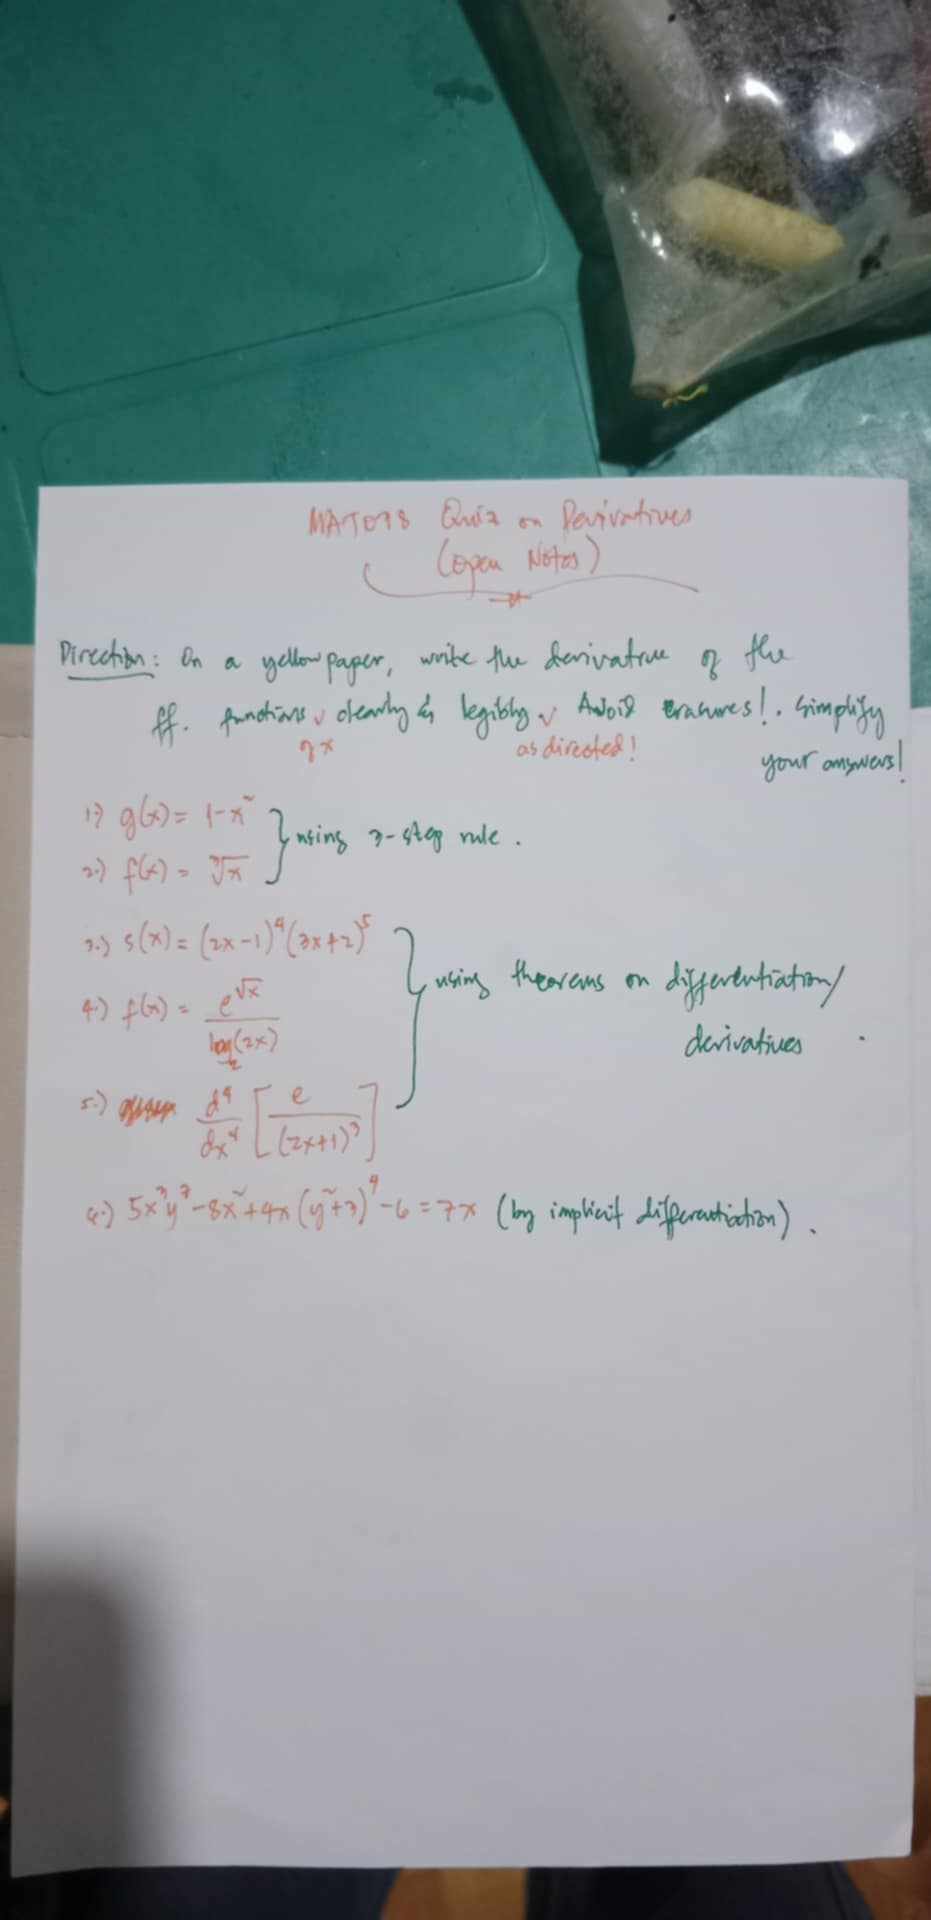 MAT078 Quiz on Derivatives
(Open Notes)
Direction: On a yellow paper, write the derivative of the
ff. functions ✓ clearly & legibly ✓ Avoid erasures!. Simplify
of x as directed! your answers!
1.) g(x) = 1-x²
2.) f(x) = ∛x } using 3-step rule.
3.) s(x) = (2x-1)⁴(3x+2)⁵
4.) f(x) = e^√x / log₂(2x) } using theorems on differentiation/
derivatives
5.) d⁴/dx⁴ [e / (2x+1)³]
6.) 5x³y⁷-8x²+4x(y²+3)⁴-6=7x (by implicit differentiation).